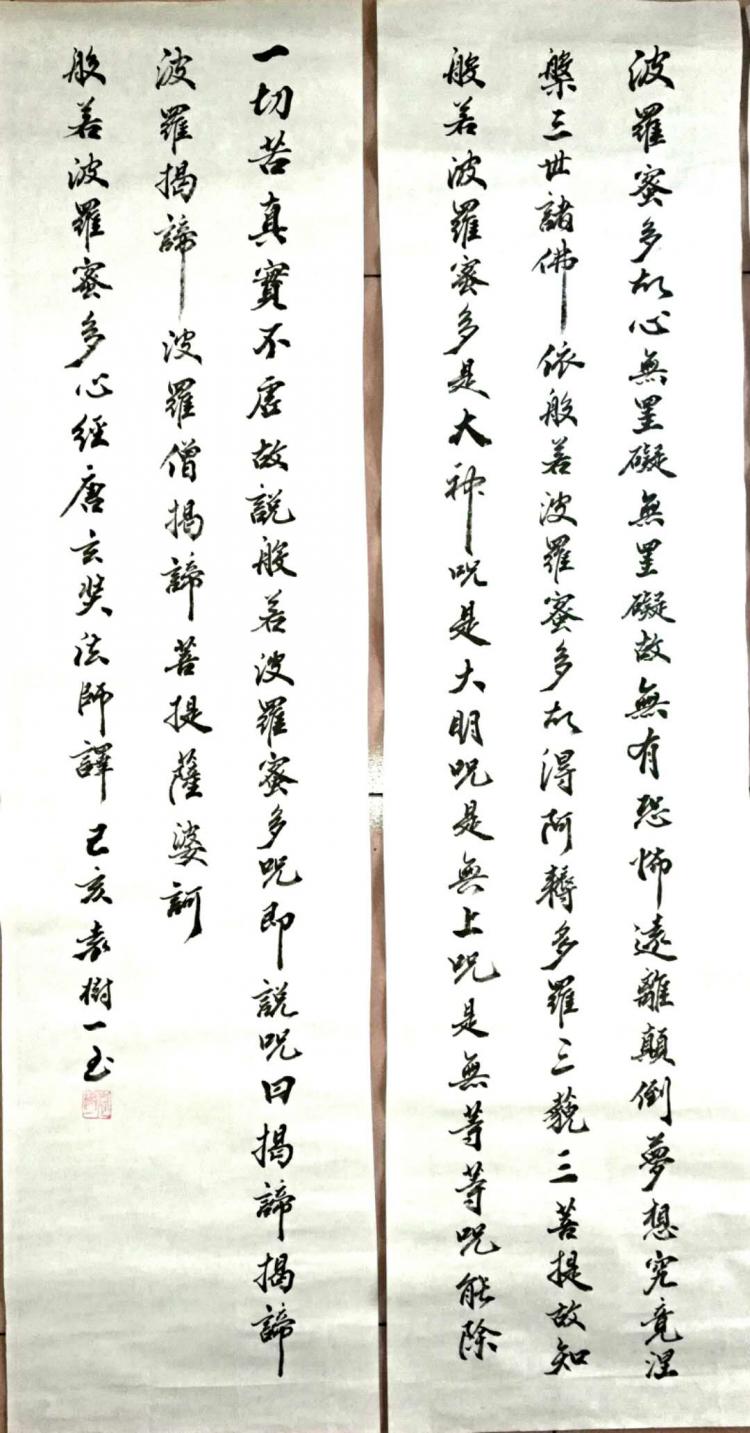 波羅蜜多故心無罣礙無罣礙故無有恐怖遠離顛倒夢想究竟涅
槃三世諸佛依般若波羅蜜多故得阿耨多羅三藐三菩提故知
般若波羅蜜多是大神咒是大明咒是無上咒是無等等咒能除
一切苦真實不虛故說般若波羅蜜多咒即說咒曰揭諦揭諦
波羅揭諦波羅僧揭諦菩提薩婆訶
般若波羅蜜多心經唐玄奘法師譯己亥袁樹一書